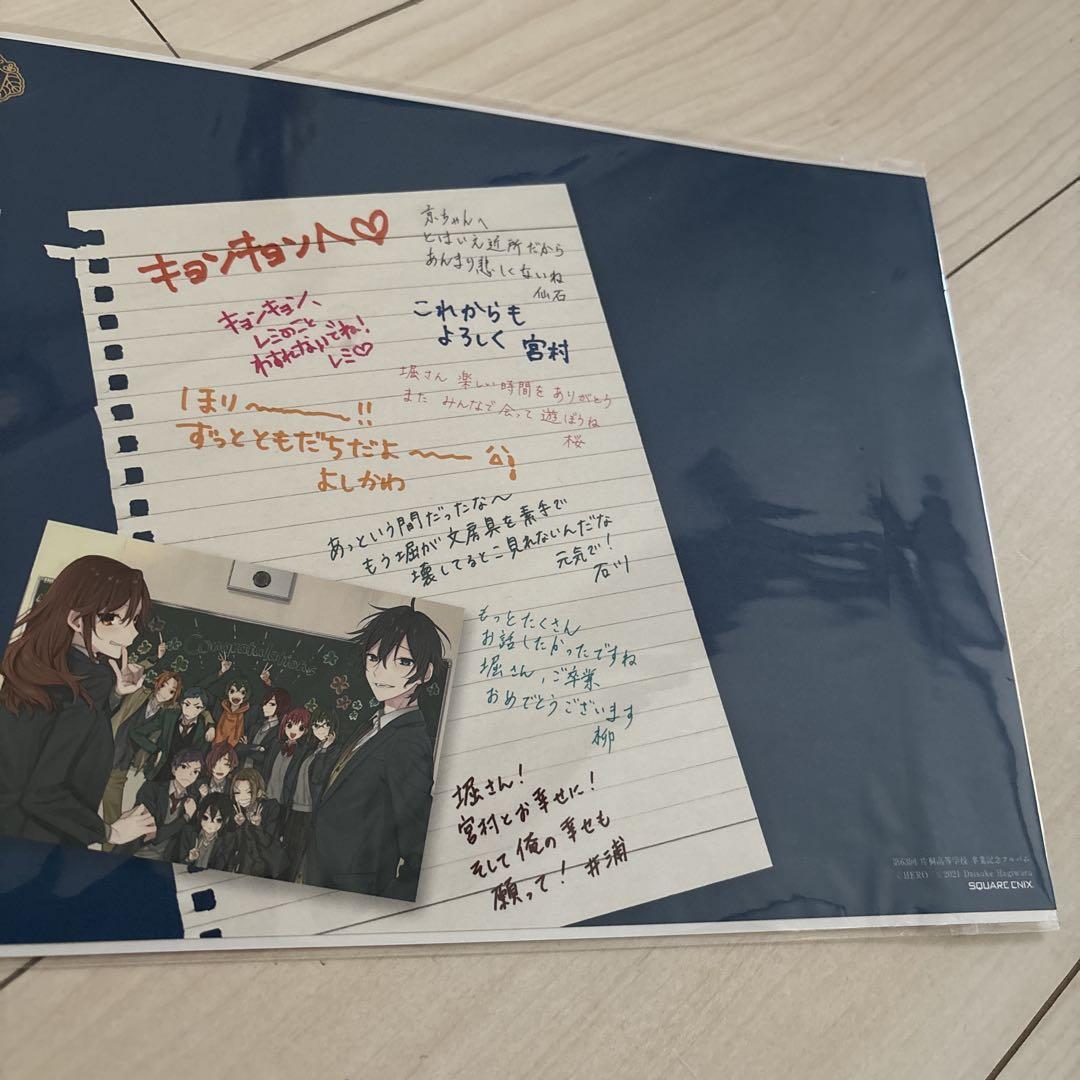 キョンキョンへ♡
京ちゃんへ
とはいえ近所だから
あんまり悲しくないね
仙石
キョンキョン、
レミのこと
わすれないでね!
レミ♡
これからも
よろしく 宮村
堀さん 楽しい時間を ありがとう
また みんなで会って 遊ぼうね
桜
ほり〜〜!!
ずっとともだちだよ〜〜
よしかわ
あっという間だったな〜
もう堀が文房具を素手で
壊してるとこ見れないんだな
元気で!
石川
もっとたくさん
お話したかったですね
堀さん、ご卒業
おめでとうございます
柳
堀さん!
宮村とお幸せに!
そして俺の幸せも
願って! 井浦
Congratulations
第63回 片桐高等学校 卒業記念アルバム
©HERO ©2021 Daisuke Hagiwara
SQUARE ENIX